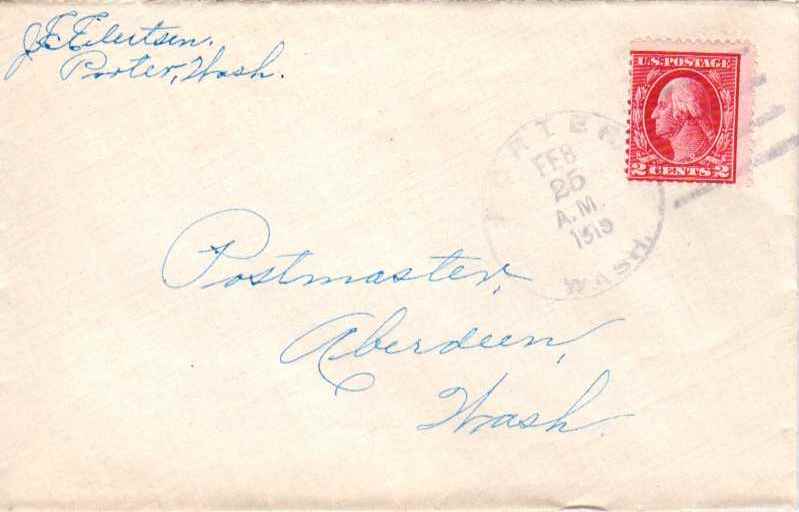 J E Elertsen.
Porter, Wash.
U.S. POSTAGE
2 CENTS 2
PORTER
FEB
25
A.M.
1919
WASH.
Postmaster,
Aberdeen,
Wash.